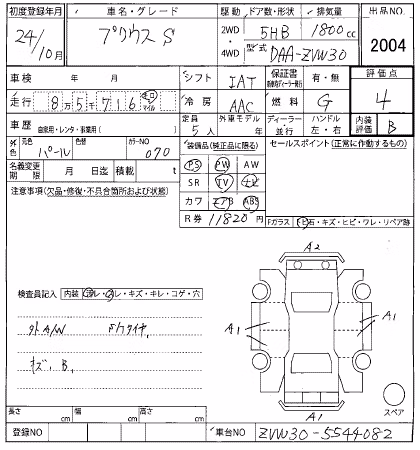 初度登録年月 車名・グレード 駆動 ドア数・形状 排気量 出品NO.
24/10月 プリウス S 2WD・4WD 5HB 1800cc 2004
型式 DAA-ZVW30
車検 年 月 シフト IAT 保証書 有・無 評価点
走行 8万5千716 キロ マイル 冷房 AAC 燃料 G 4
車歴 自家用・レンタ・事業用( ) 定員 5人 外車モデル 年 ディーラー・並行 ハンドル 左・右 内装評価 B
外色 元色 パール 色替 カラーNO 070 装備品(純正品に限る) セールスポイント(正常に作動するもの)
名義変更期限 月 日迄 積載 t PS PW AW
注意事項(欠品・修復・不具合箇所および状態) SR TV ナビ
カワ エアB ABS
R券 11820円 Fガラス 飛石・キズ・ヒビ・ワレ・リペア跡
A2
検査員記入 内装 汚レ・スレ・キズ・キレ・コゲ・穴
外A/W
A1 A1
キズ. B,
スペア
A1
長さ cm 幅 cm 高さ cm
登録NO 車台NO ZVW30-5544082